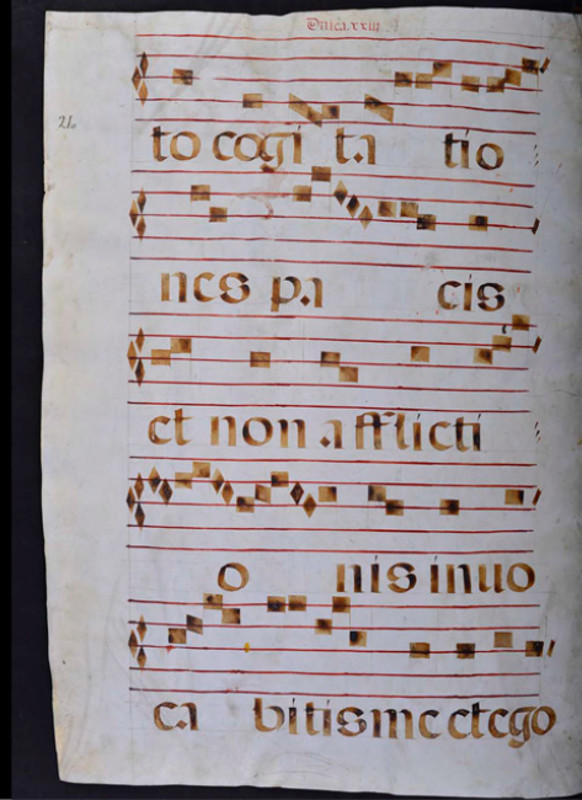 Dn̄ica. xxiii
21.
to cogi ta tio
nes pa cis
et non afflicti
o nis inuo
ca bitis me et ego